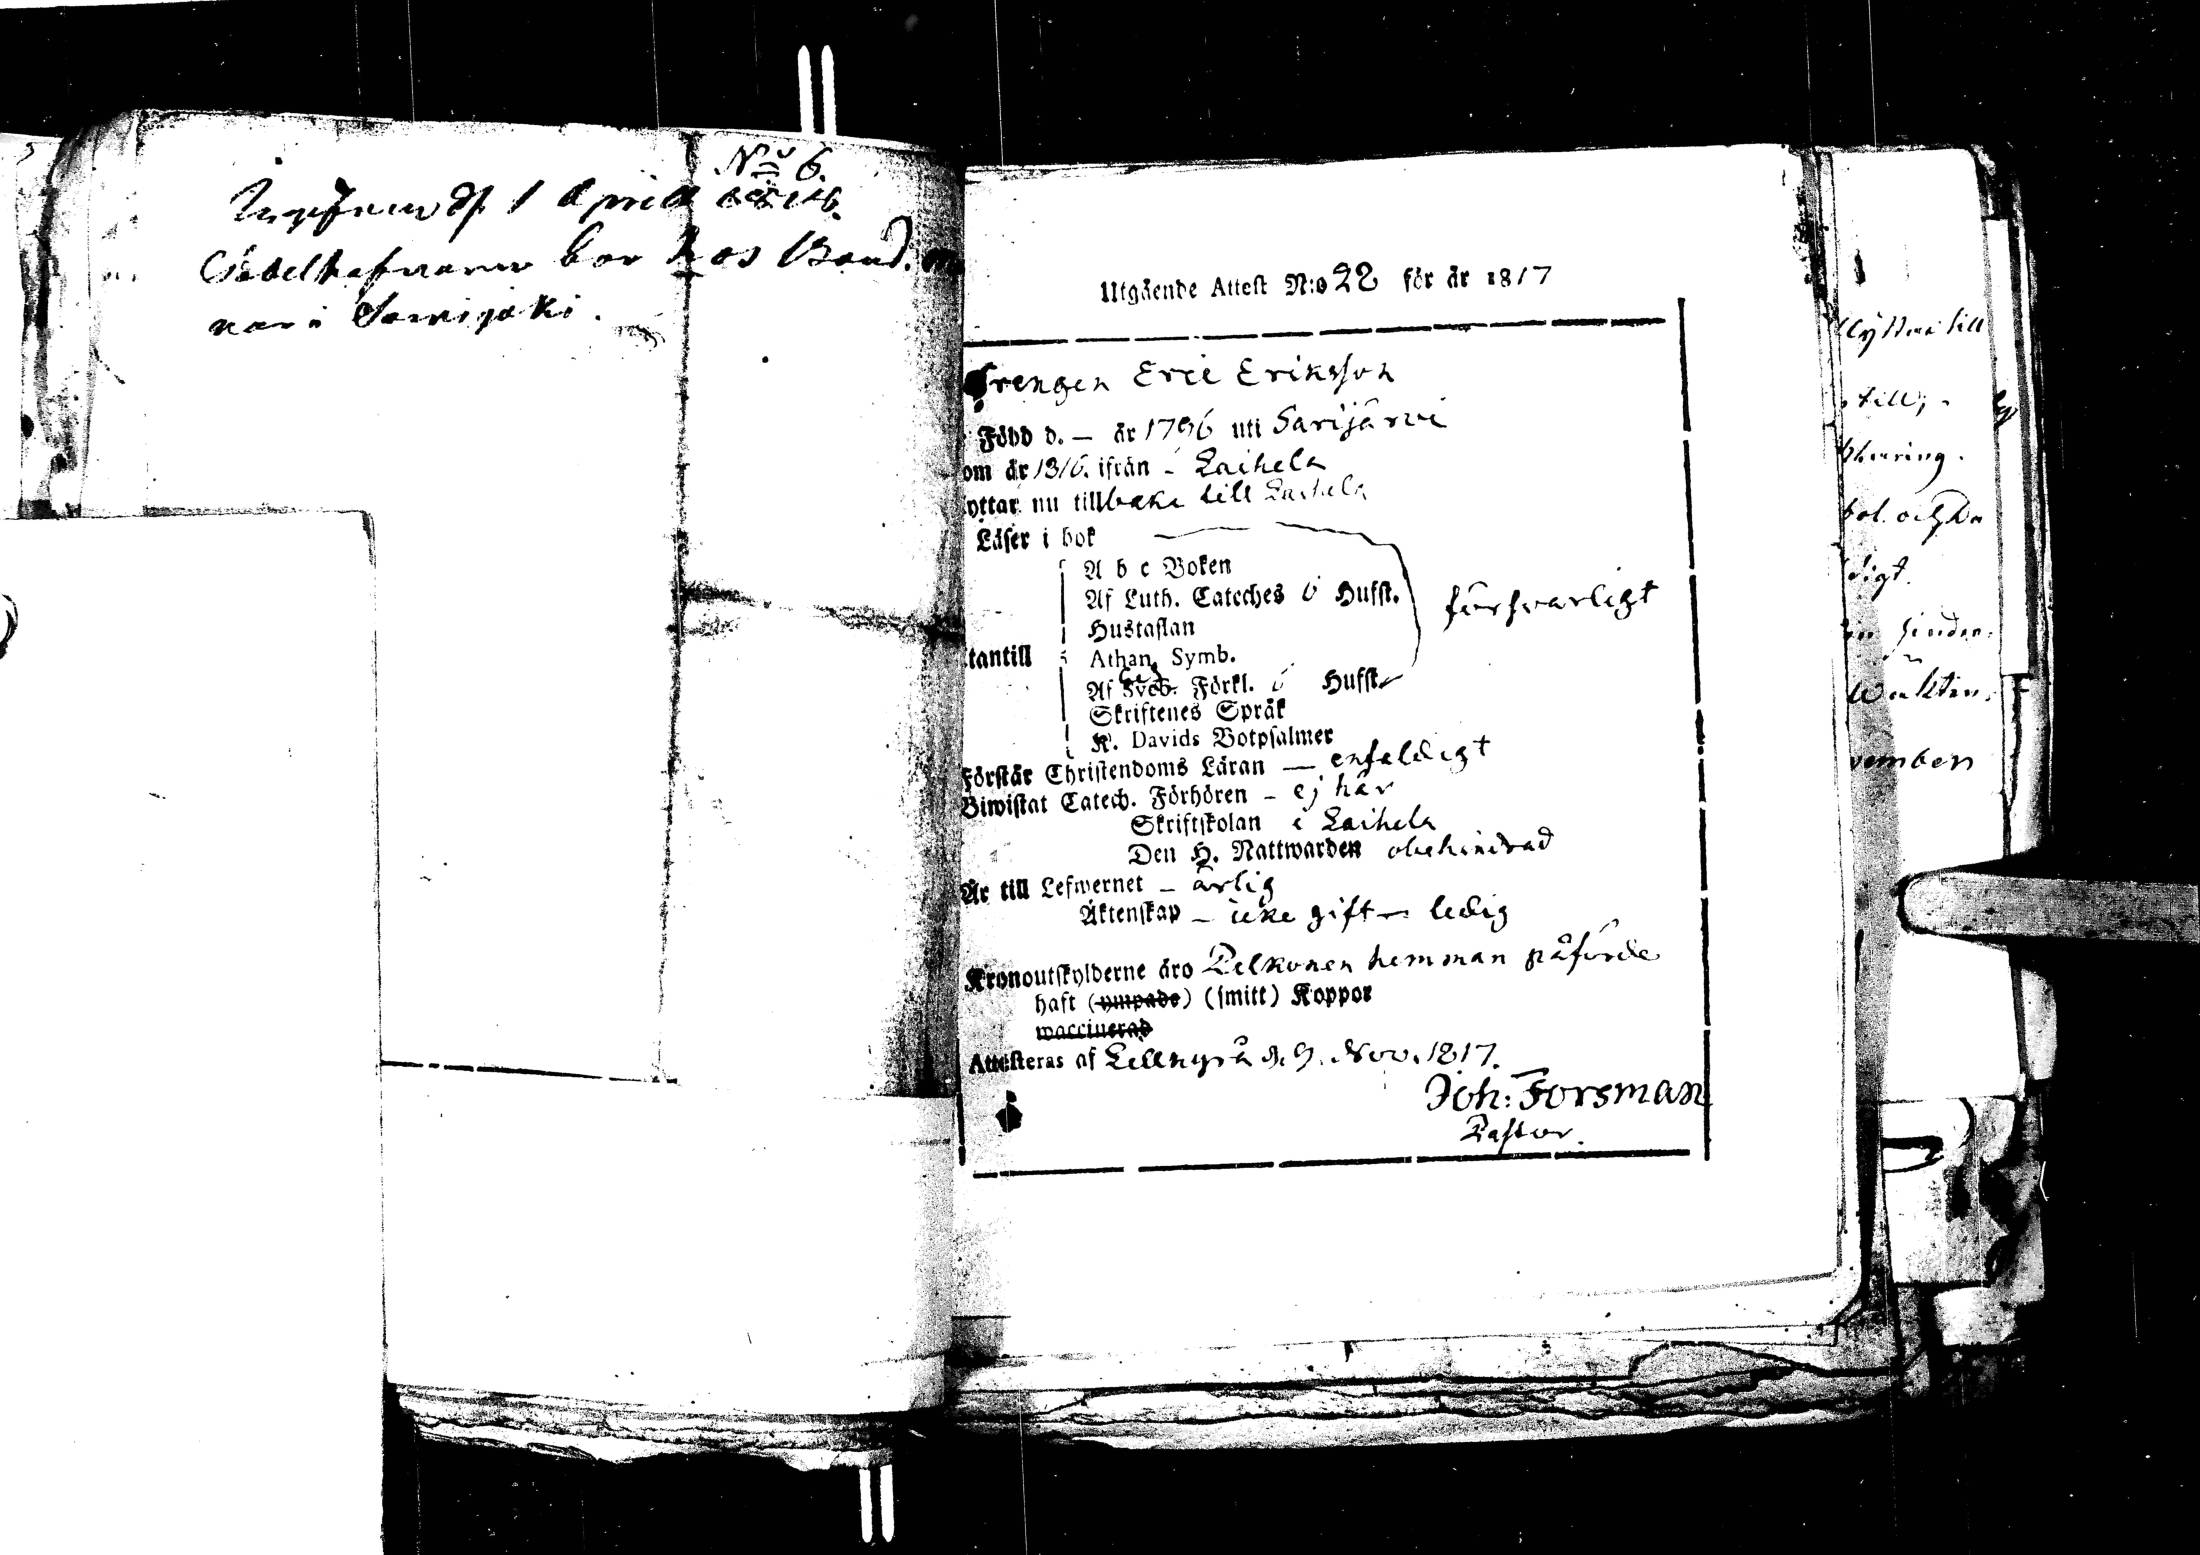 N:o 6.
1 April
Sedelhafvaren bor hos Bond.
nan i Sarvijoki.
Utgående Attest N:o 22 för år 1817
Drengen Eric Eriksson
Född d. — år 1796 uti Sarijärvi
om år 1816. ifrån - Laihela
yttar nu tillbaka till Laihela
Läser i bok
A b c Boken
Af Luth. Cateches 6 Hufst.
Hustaflan
försvarligt
tantill
Athan. Symb.
Af Sveb. Förkl. 6 Hufst.
Skriftenes Språk
K. Davids Botpsalmer
Förstår Christendoms Läran — enfaldigt
Biwistat Catech. Förhören - ej här
Skriftskolan i Laihela
Den H. Nattwarden obehindrad
Är till Lefwernet - ärlig
Äktenskap - icke gift — ledig
Kronoutskylderne äro Pelkonen hemman påförde
haft (ympade) (smitt) Koppor
waccinerad
Attesteras af Lillkyrå d. 9. Nov. 1817.
Joh: Forsman
Pastor.
till
till; -
digt.
vember